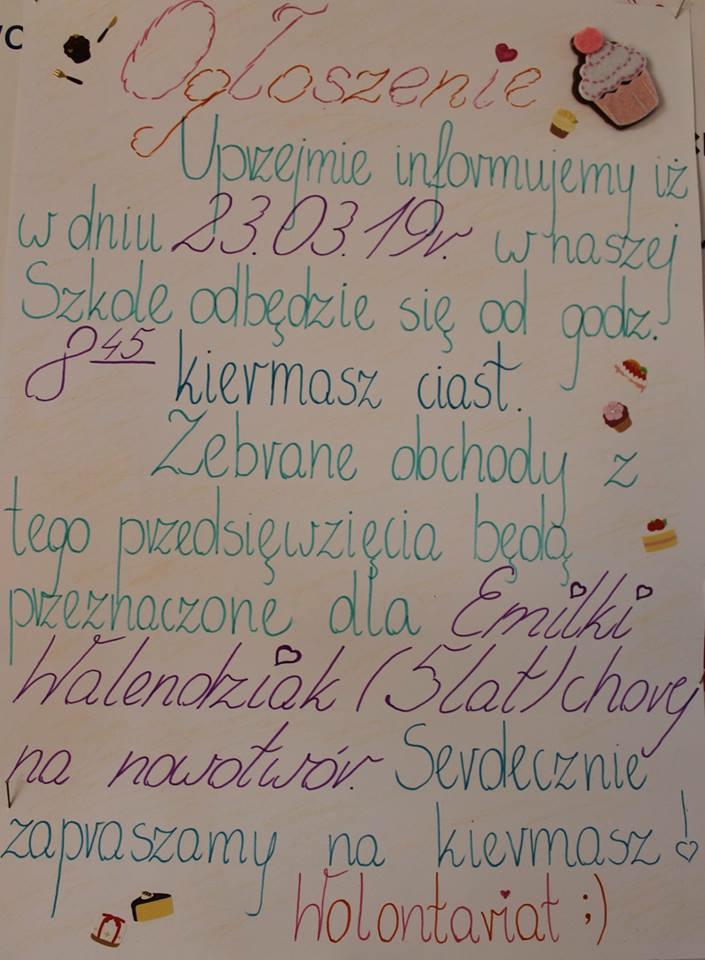 Ogłoszenie
Uprzejmie informujemy iż
w dniu 23.03.19r. w naszej
Szkole odbędzie się od godz.
8 45 kiermasz ciast.
Zebrane obchody z
tego przedsięwzięcia będą
przeznaczone dla Emilki
Walendziak (5 lat) chorej
na nowotwór. Serdecznie
zapraszamy na kiermasz!
Wolontariat ;)